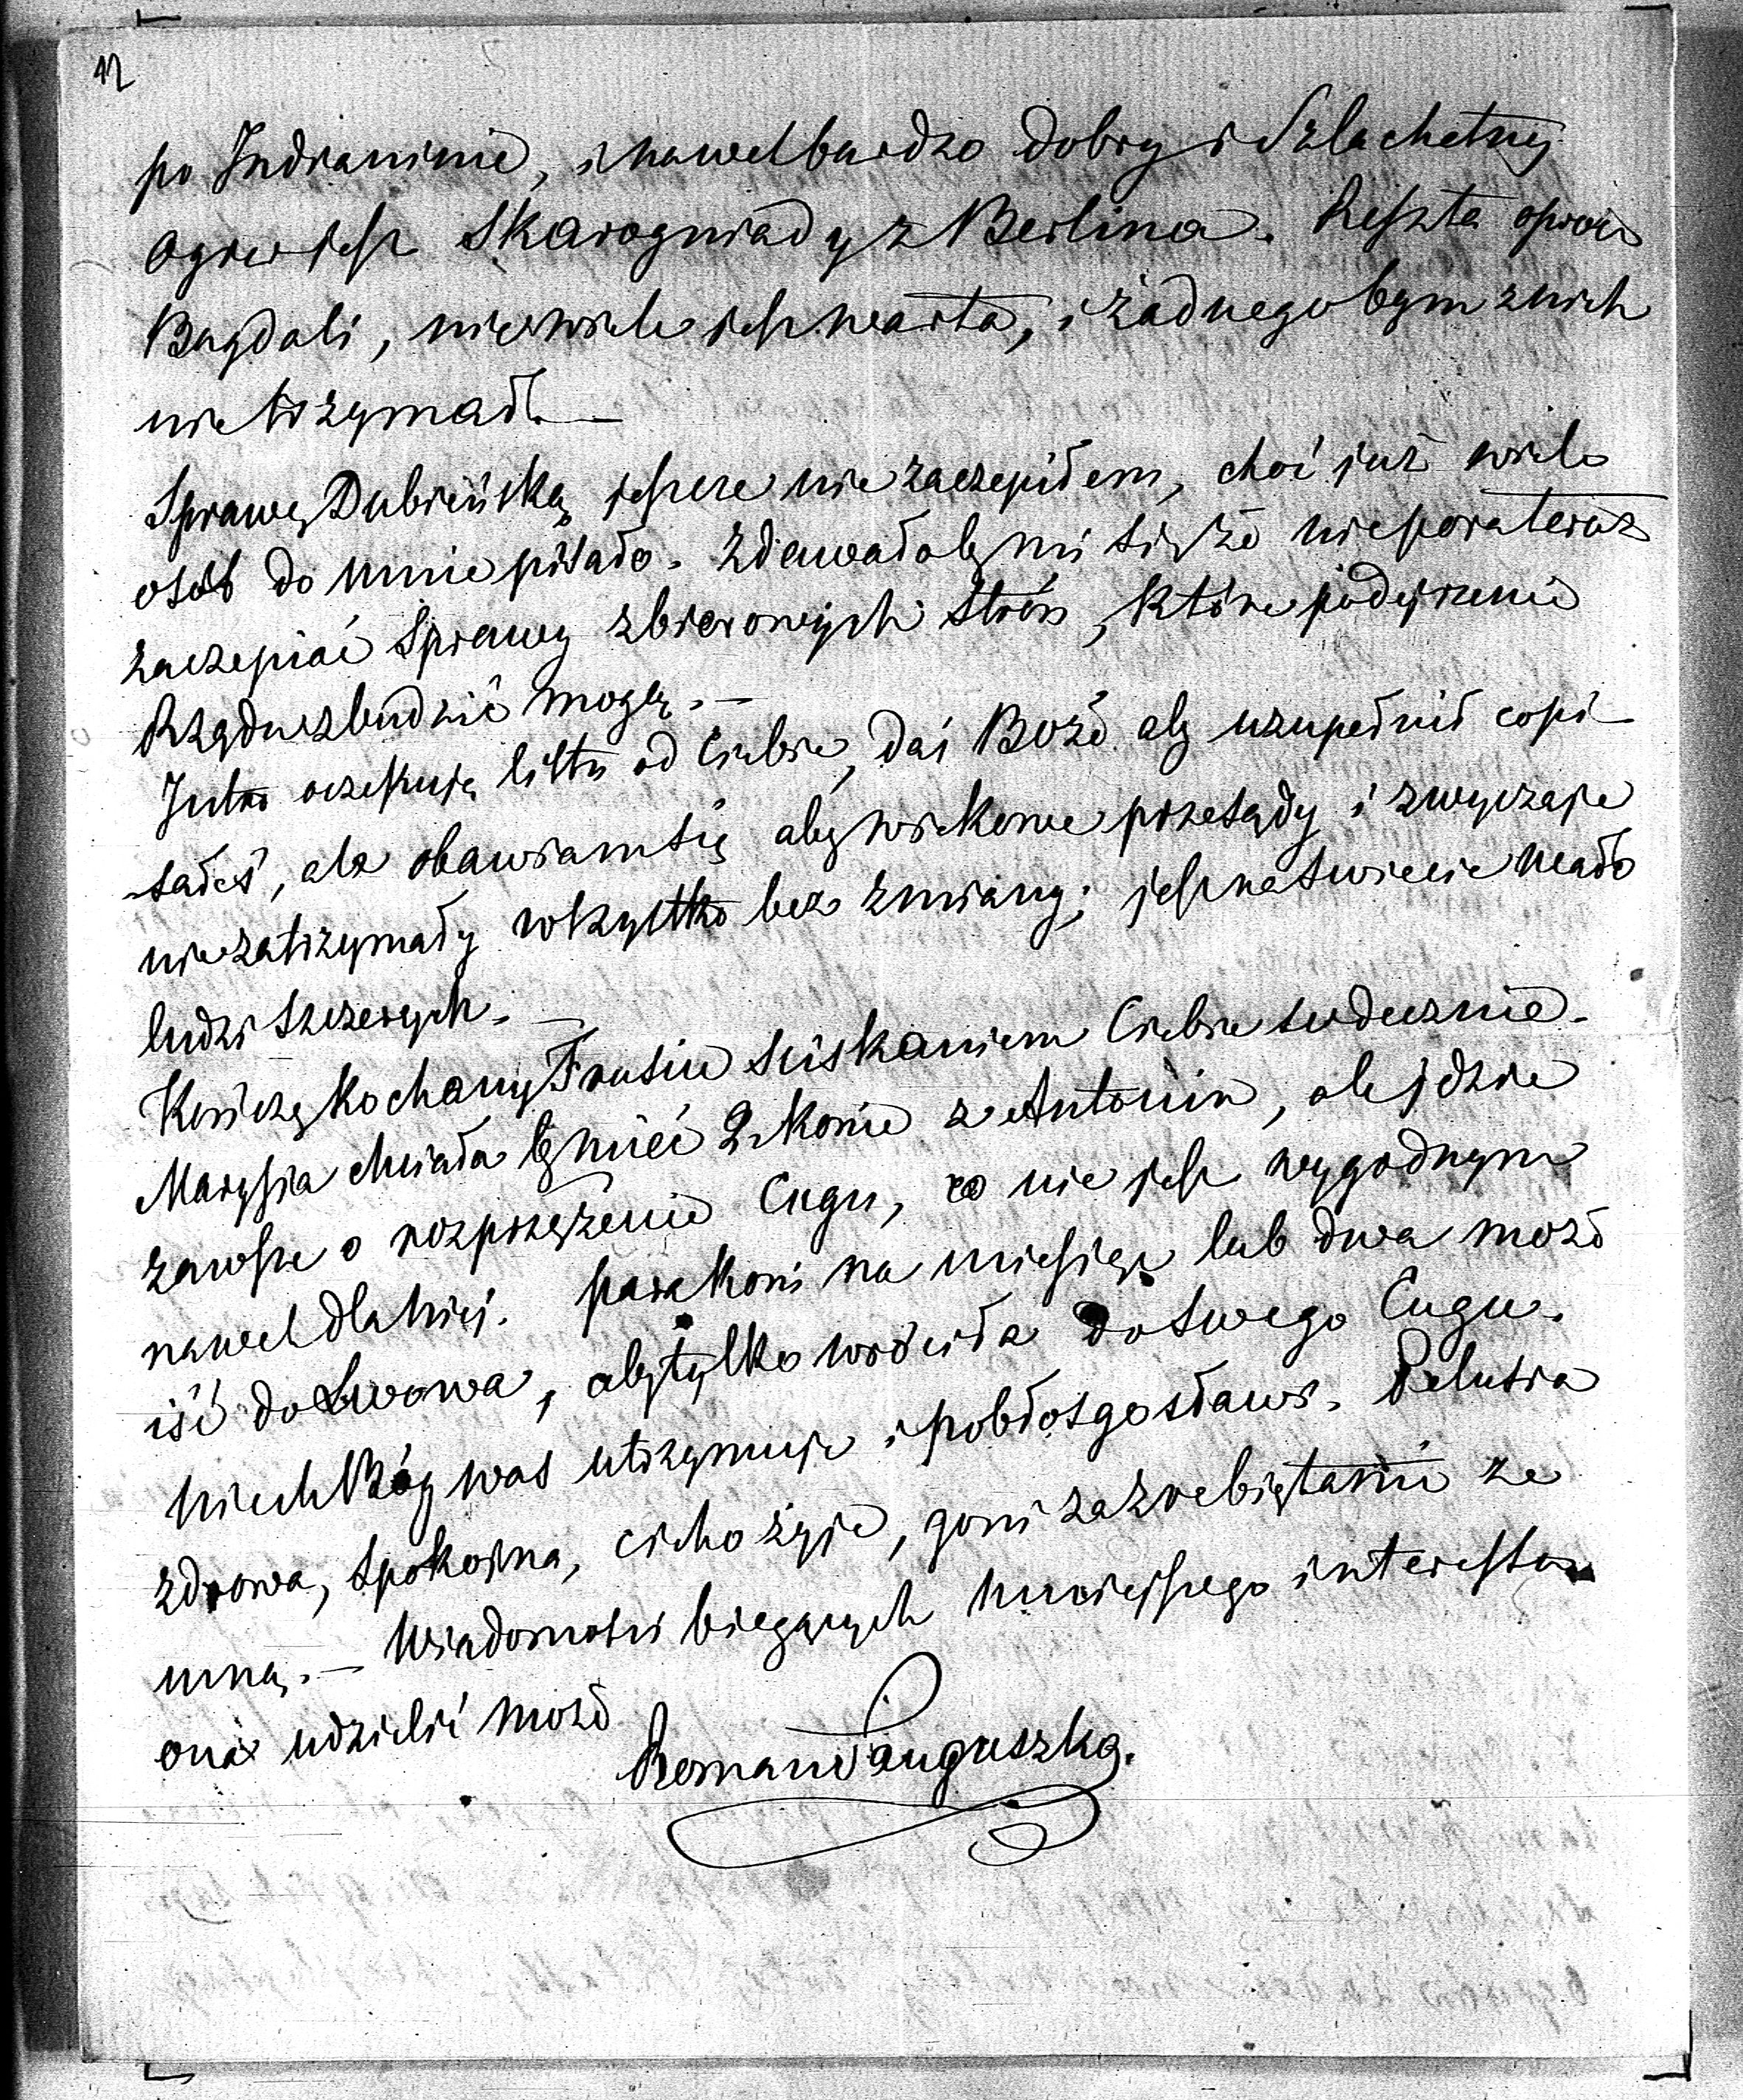 12
po Indianinie, i nawet bardzo dobry i Szlachetny
Ogier jest Skarogniady z Berlina. Reszta oprócz
Bagdali, nie wiele jest warta, i żadnego bym z nich
nie trzymał. —
Sprawy Dubieńską jeszcze nie zaczepiłem, choć już wiele
osób do mnie pisało. Zdawałoby mi się że nie pora teraz
zaczepiać Sprawy zbiorowych stron, które podejrzenie
Rządu wzbudzić mogą. —
Jutro oczekuję listu od Ciebie, daj Boże aby uzupełnił co pi-
sałeś, ale obawiam się aby wiekowe przesądy i zwyczaje
nie zatrzymały wszystko bez zmiany; jest na świecie mało
ludzi szczerych. —
Kończę kochany Frusiu sciskaniem Ciebie serdecznie.
Marysia chciała by mieć 2 konie z Antonin, ale idzie
zawsze o rozprzężenie Cugu, co nie jest wygodnym
nawet dla niej. para koni na miesiąc lub dwa może
iść do Lwowa, aby tylko wróciła do swego Cugu.
Niech Bóg was utrzymuje i pobłogosławi. Pelusia
zdrowa, spokojna, cicho żyje, goni za zrebiętami ze
mną. — Wiadomości bieżących mniejszego interessu
ona udzielić może
Roman Sanguszko.